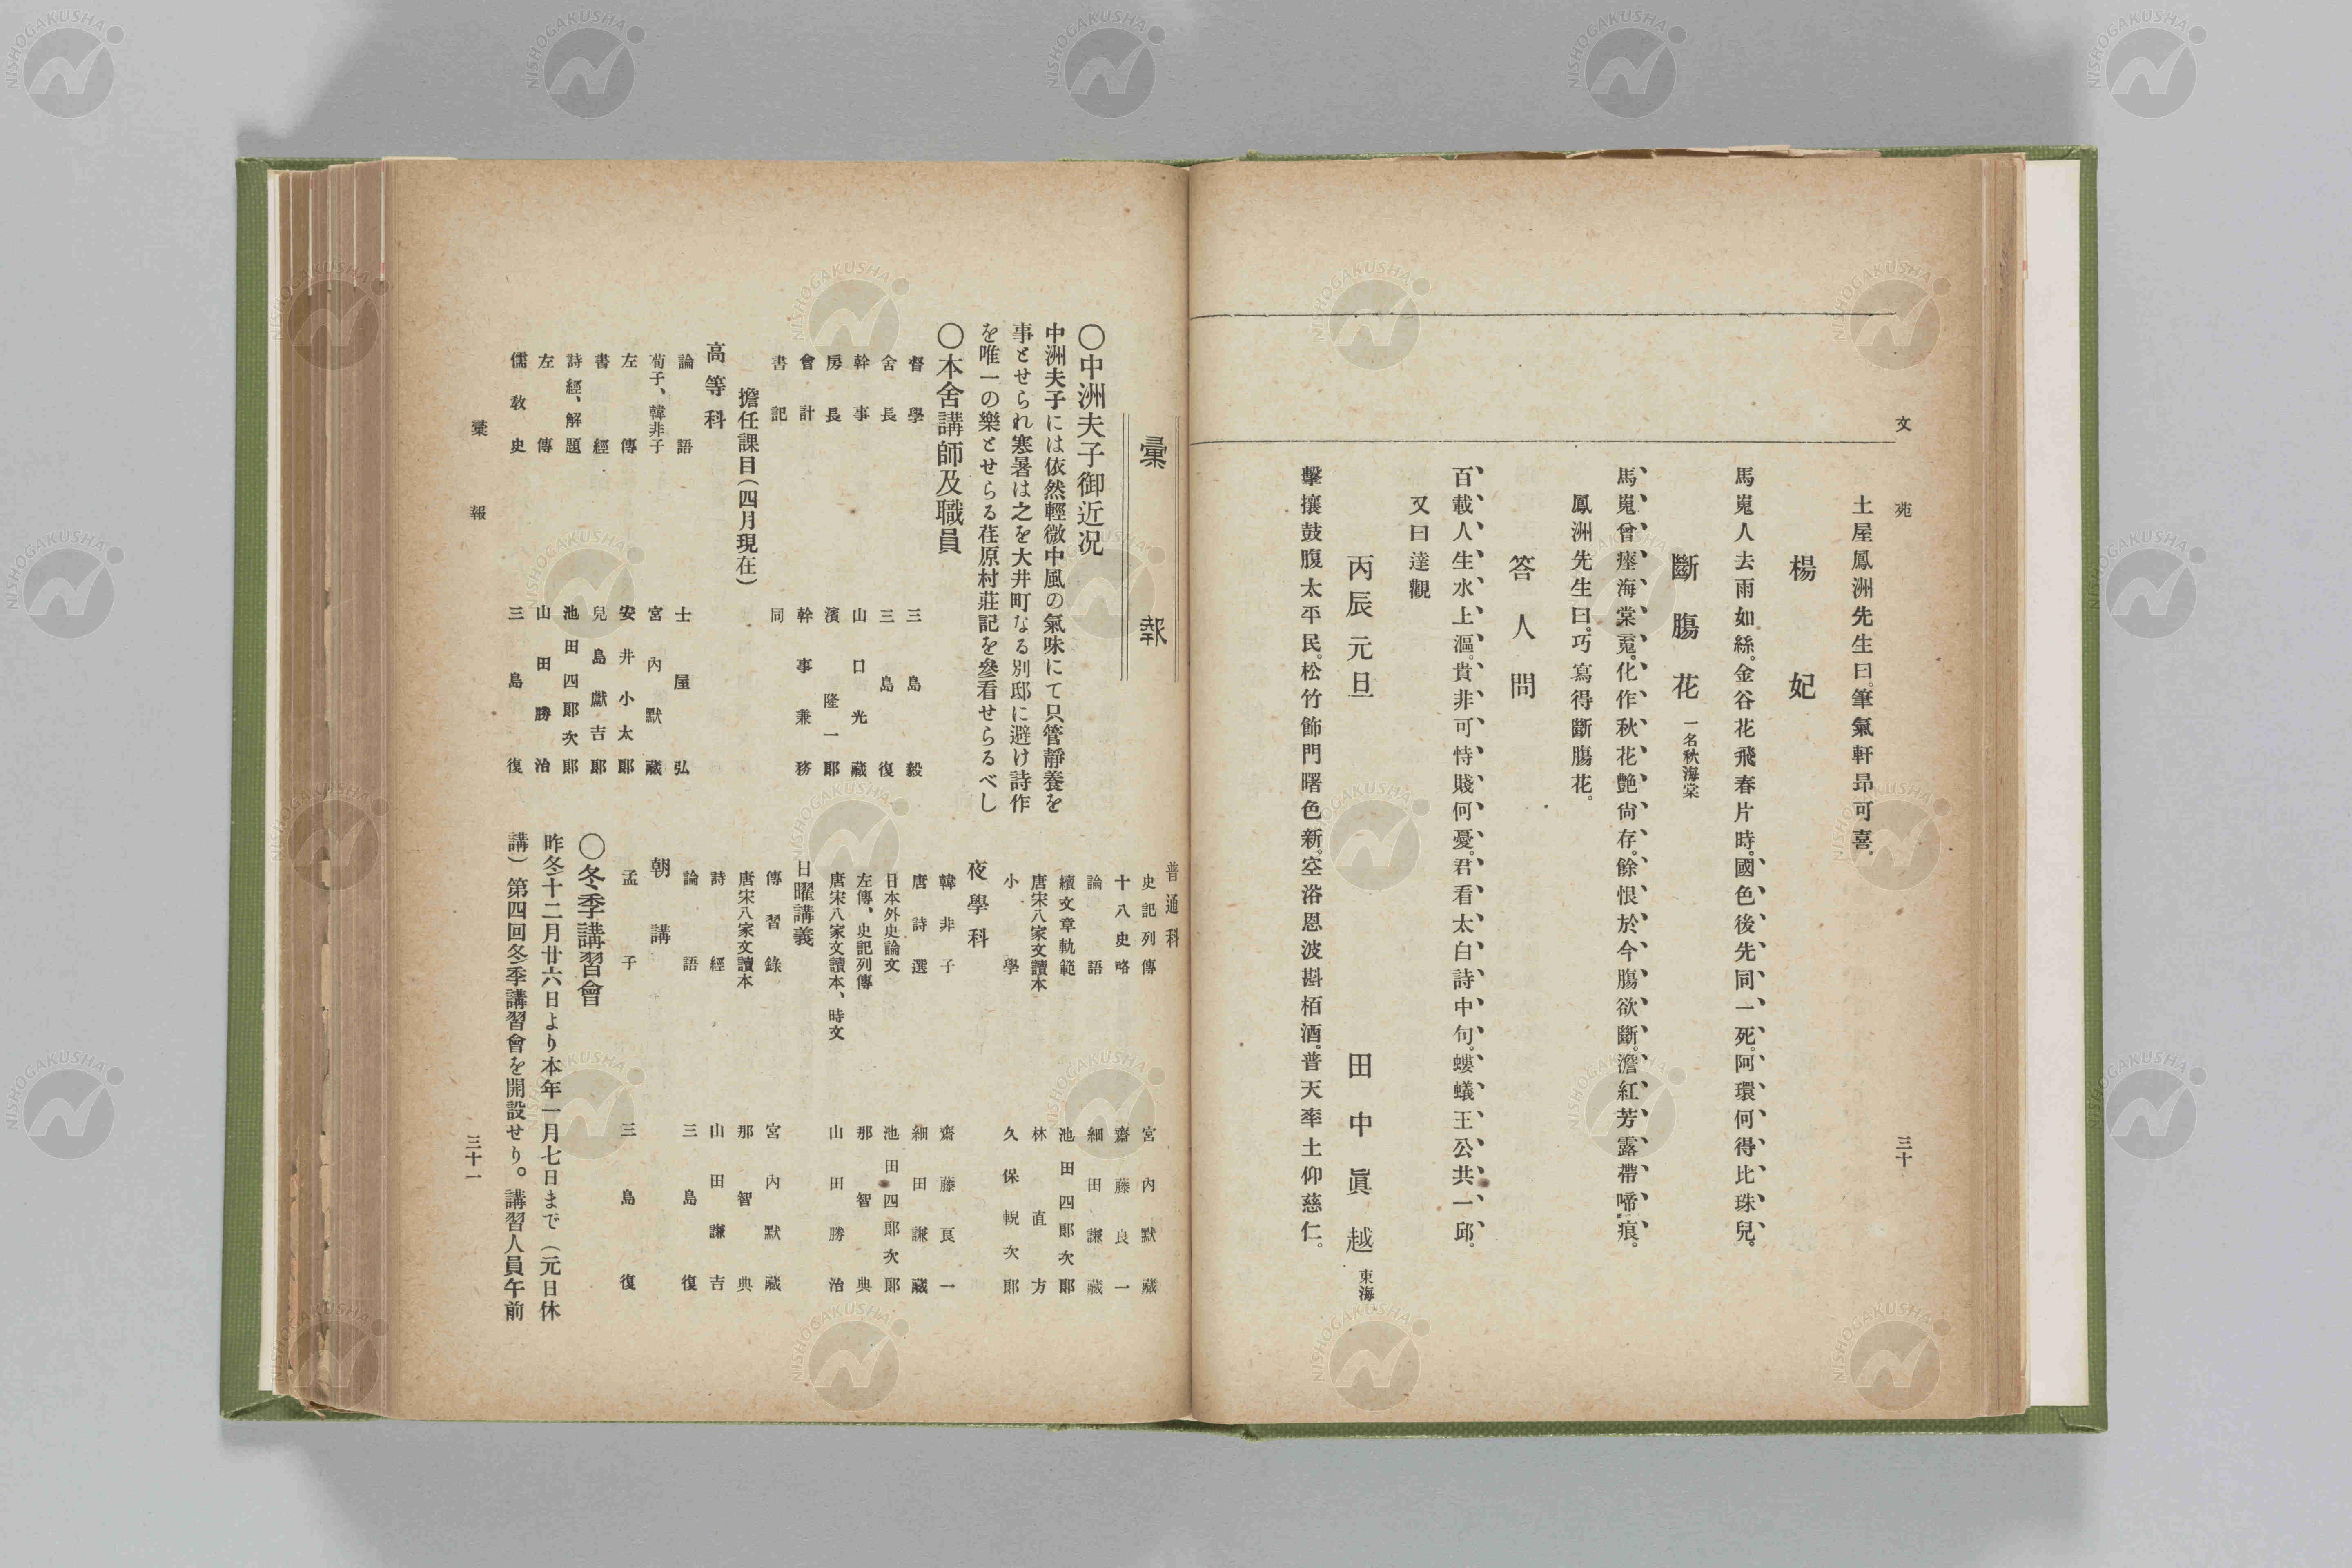 文苑
三十
土屋鳳洲先生曰。筆氣軒昂可喜。
楊妃
馬嵬人去雨如絲。金谷花飛春片時。國色後先同一死。阿環何得比珠兒。
斷膓花 一名秋海棠
馬嵬曾瘞海棠寃。化作秋花艶尙存。餘恨於今膓欲斷。澹紅芳露帶啼痕。
鳳洲先生曰。巧寫得斷膓花。
答人問
百載人生水上漚。貴非可恃賤何憂。君看太白詩中句。螻蟻王公共一邱。
又曰達觀
丙辰元旦
田中眞越 東海
擊攘鼓腹太平民。松竹飾門曙色新。空浴恩波斟栢酒。普天率土仰慈仁。
彙報
〇中洲夫子御近況
中洲夫子には依然輕微中風の氣味にて只管靜養を
事とせられ寒暑は之を大井町なる別邸に避け詩作
を唯一の樂とせらる荏原村莊記を參看せらるべし
〇本舍講師及職員
督學 三島毅
舍長 三島復
幹事 山口光藏
房長 濱隆一郞
會計 幹事兼務
書記 同
擔任課目(四月現在)
高等科
論語 土屋弘
荀子、韓非子 宮內默藏
左傳 安井小太郞
書經 兒島獻吉郞
詩經、解題 池田四郞次郞
左傳 山田勝治
儒敎史 三島復
普通科
史記列傳 宮內默藏
十八史略 齋藤良一
論語 細田謙藏
續文章軌範 池田四郞次郞
唐宋八家文讀本 林直方
小學 久保輗次郞
夜學科
韓非子 齋藤良一
唐詩選 細田謙藏
日本外史論文 池田四郞次郞
左傳、史記列傳 那智典
唐宋八家文讀本、時文 山田勝治
日曜講義
傳習錄 宮內默藏
唐宋八家文讀本 那智典
詩經 山田謙吉
論語 三島復
朝講
孟子 三島復
〇冬季講習會
昨冬十二月廿六日より本年一月七日まで(元日休
講)第四回冬季講習會を開設せり。講習人員午前
彙報
三十一
NISHOGAKUSHA